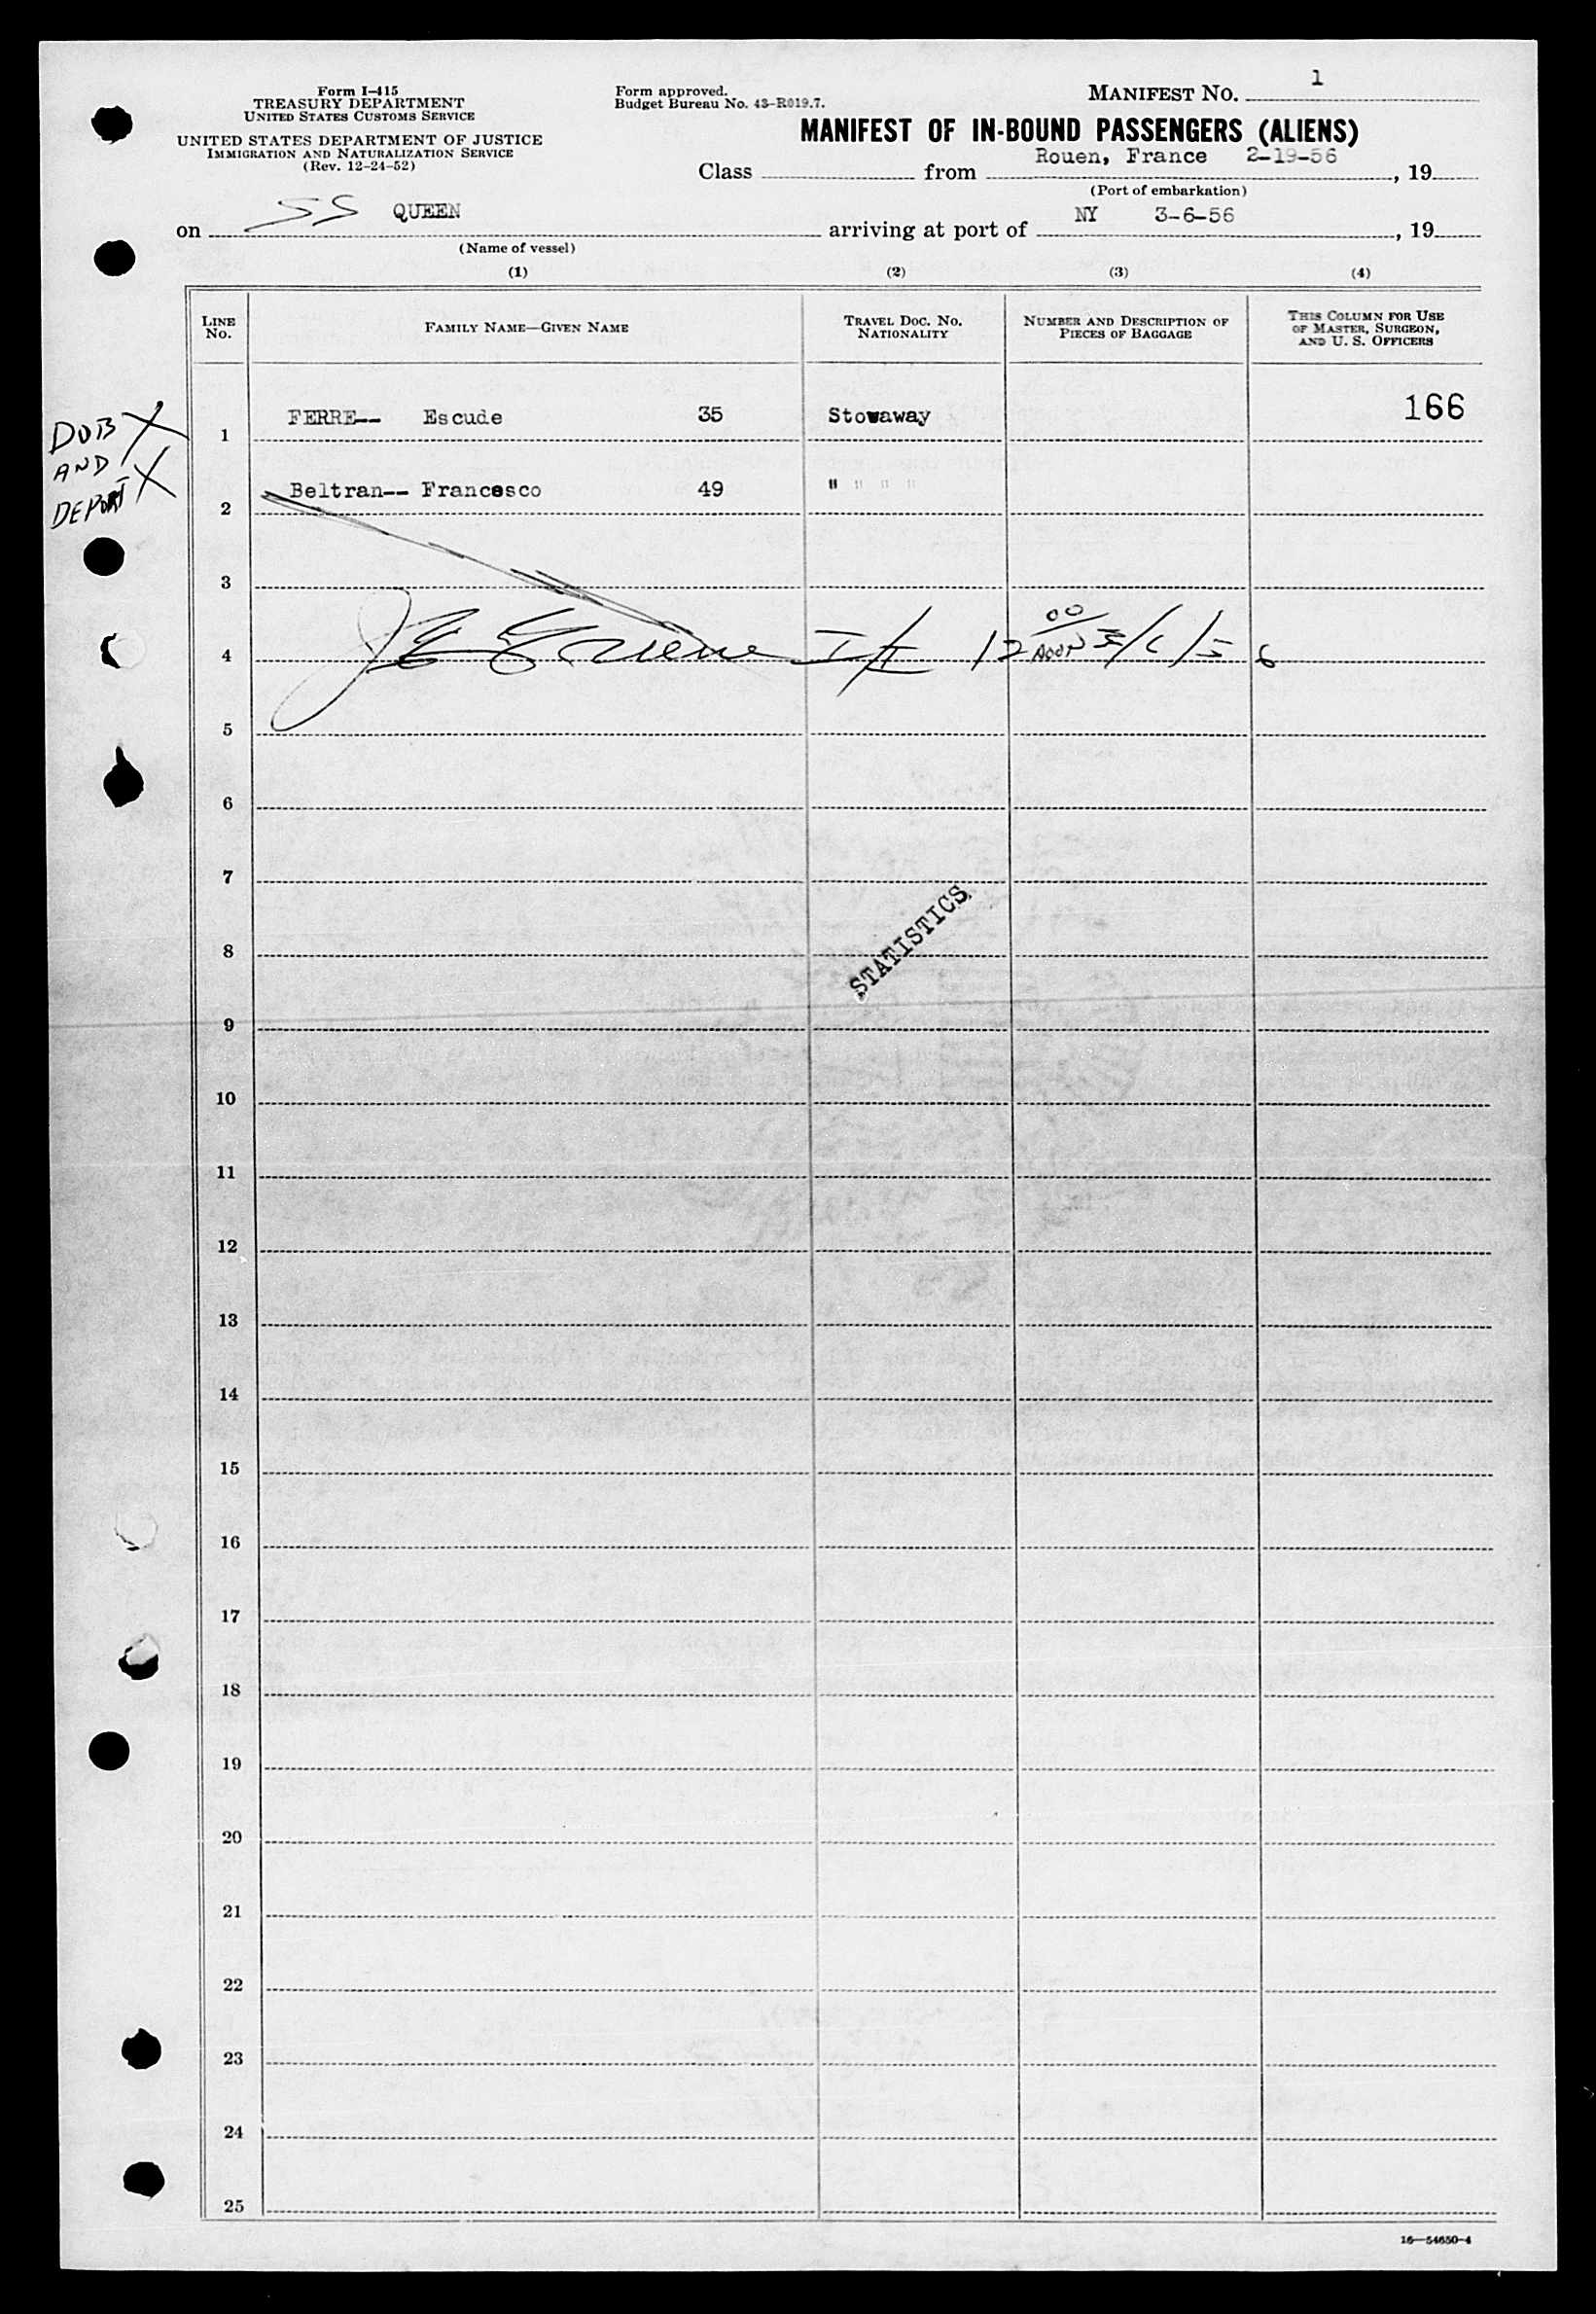 Form I-415
TREASURY DEPARTMENT
UNITED STATES CUSTOMS SERVICE
UNITED STATES DEPARTMENT OF JUSTICE
IMMIGRATION AND NATURALIZATION SERVICE
(Rev. 12-24-52)
Form approved.
Budget Bureau No. 43-R019.7.
MANIFEST NO. 1
MANIFEST OF IN-BOUND PASSENGERS (ALIENS)
Class from Rouen, France 2-19-56, 19
(Port of embarkation)
on SS QUEEN arriving at port of NY 3-6-56, 19
(Name of vessel)
(1) (2) (3) (4)
LINE No. FAMILY NAME—GIVEN NAME TRAVEL DOC. NO. NATIONALITY NUMBER AND DESCRIPTION OF PIECES OF BAGGAGE THIS COLUMN FOR USE OF MASTER, SURGEON, AND U. S. OFFICERS
DOB X
AND
DEPORT X
1 FERRE-- Escude 35 Stowaway 166
2 Beltran-- Francesco 49 " " " "
3
4 I/I 12 00/NOON 3/6/56
5
6
7
STATISTICS
8
9
10
11
12
13
14
15
16
17
18
19
20
21
22
23
24
25
16—54650-4